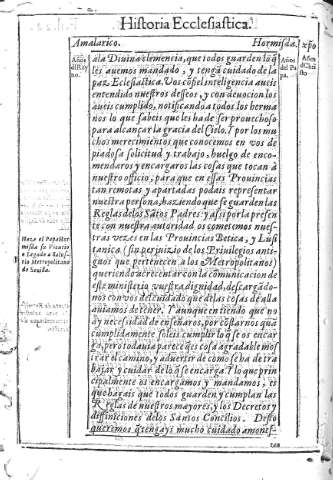 Historia Ecclesiastica.
Amalarico. Hormisda. xpo
Años del Rey no.
Años del Papa.
Años de Christo
ala Divina clemencia, que todos guarden lo q̃
les auemos mandado, y tengã cuidado de la
paz Eclesiastica. Vos cõ fiel inteligencia aueis
entendido nuestros desseos, y con deuocion los
aueis cumplido, notificãdo a todos los herma
nos lo que sabeis que les ha de ser prouechoso
para alcançar la gracia del Cielo. Y por los mu
chos merecimientos que conocemos en vos de
piadosa solicitud y trabajo, huelgo de enco-
mendaros y encargaros las cosas que tocan à
nuestro officio, para que en essas Prouincias
tan remotas y apartadas podais representar
nuestra persona, haziendo que se guarden las
Reglas de los Sãtos Padres: y assi por la presen
te con nuestra autoridad os cometemos nues-
tras vezes en las Prouincias Betica, y Lusi
tanica (sin perjuizio de los Privilegios anti-
guos que pertenecen a los Metropolitanos)
queriendo acrecentar con la comunicacion de
este ministerio vuestra dignidad, descargãdo-
nos con vos del cuidado que de las cosas de alla
auiamos de tener. Y aunque entiendo que no
ay necesidad de enseñaros, por costarnos quã
cumplidamente soleis cumplir lo q̃ se os encar
ga, pero todauia parece q̃ es cosa agradable mos
trar el camino, y advertir de como se ha de tra
bajar y cuidar de lo q̃ se encarga. Y lo que prin
cipalmente os encargamos y mandamos, es
que hagais que todos guarden y cumplan las
Reglas de nuestros mayores, y los Decretos y
diffiniciones de los Santos Concilios. Desto
queremos q̃ tengays mucho cuidado amones-
Haze el Papa Hor
misda su Vicario
y Legado a Salus-
tio Metropolitano
de Seuilla.